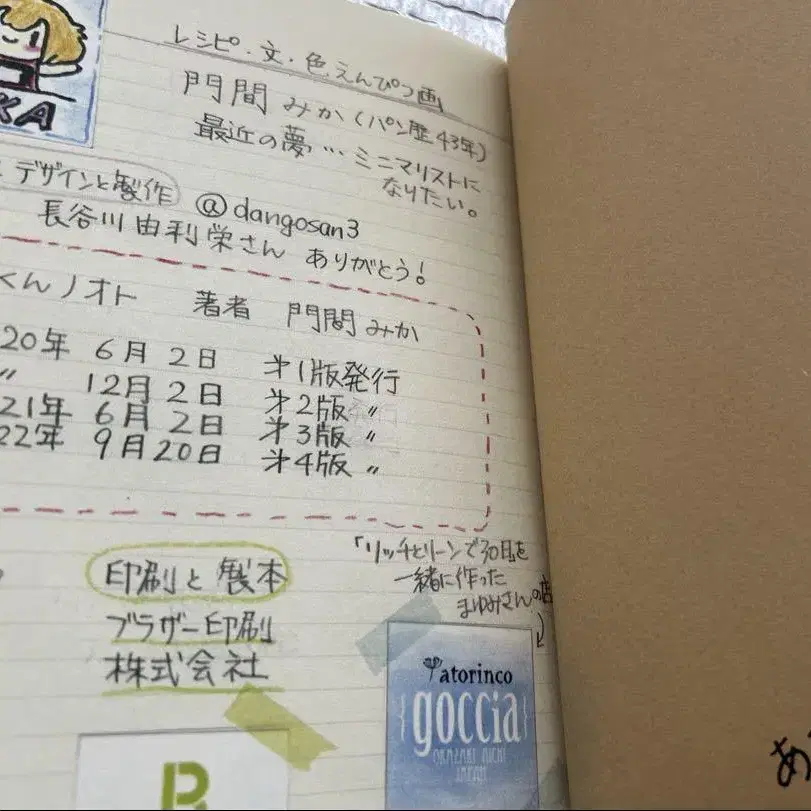 KA
レシピ・文・色えんぴつ画
門間みか(パン歴43年)
最近の夢…ミニマリストに
なりたい。
デザインと製作 @dangosan3
長谷川由利栄さん ありがとう!
くんノオト 著者 門間みか
20年 6月2日 才1版発行
〃 12月2日 才2版 〃
21年 6月2日 才3版 〃
22年 9月20日 才4版 〃
印刷と製本
ブラザー印刷
株式会社
「リッチとリーンで30日を
一緒に作った
まゆみさんの店
atorinco
{goccia}
OKAZAKI AICHI
JAPAN
B
あ